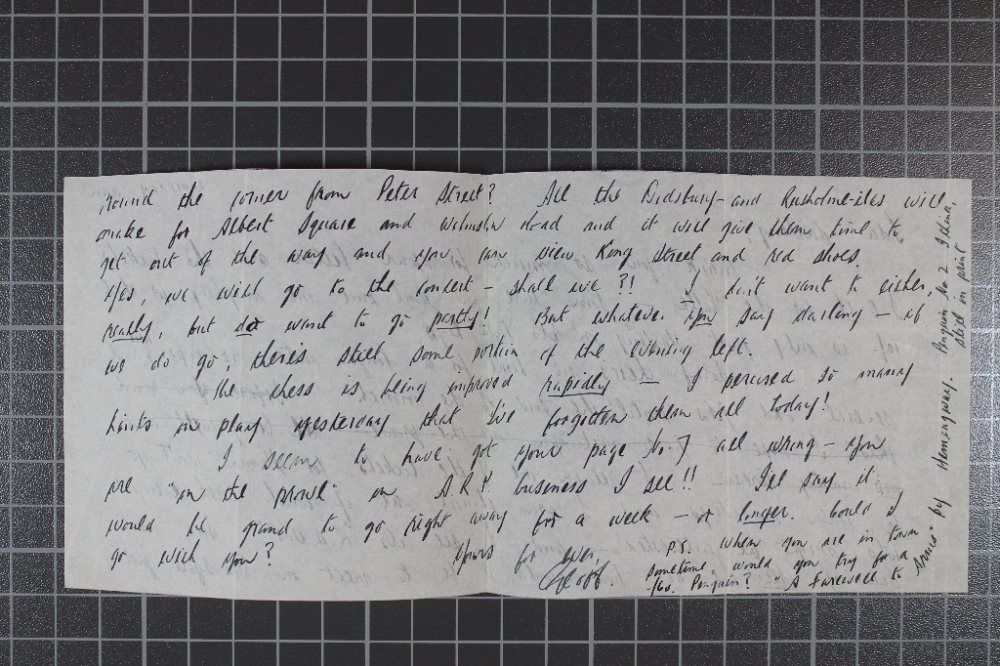 round the corner from Peter Street? All the Didsbury- and Rusholme-ites will
make for Albert Square and Wilmslow Road and it will give them time to
get out of the way and you can view King Street and red shoes.
Yes, we will go to the concert - shall we?!! I don't want to either,
really, but do want to go partly! But whatever you say darling - if
we do go, there's still some portion of the evening left.
The chess is being improved rapidly - I perused so many
hints on play yesterday that I've forgotten them all today!
I seem to have got your page No. 7 all wrong - you
are "on the prowl" on A.R.P. business I see!! I'll say it
would be grand to go right away for a week - or longer. Could I
go with you? Yours for ever,
Geoff.
P.S. When you are in town
sometime, would you try for a
Penguin? "A Farewell to
Arms" by Hemingway. Penguin No 2 I think,
still in print